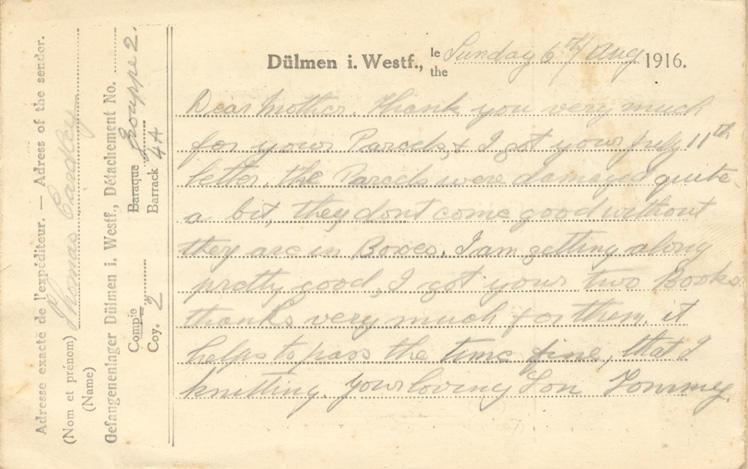 Dülmen i. Westf., le the Sunday 6th Aug 1916.
Dear Mother. Thank you very much
for your Parcels, & I got your July 11th
letter. the Parcels were damaged quite
a bit, they dont come good without
they are in Boxes. I am getting along
pretty good, I got your two Books.
thanks very much for them, it
helps to pass the time fine, that &
knitting. Your loving Son Tommy.
Adresse exacte de l'expéditeur. — Adress of the sender.
(Nom et prénom) Thomas
(Name)
Gefangenenlager Dülmen i. Westf., Détachement No.
Compie Baraque Grouppe 2.
Coy. 2 Barrack 4A